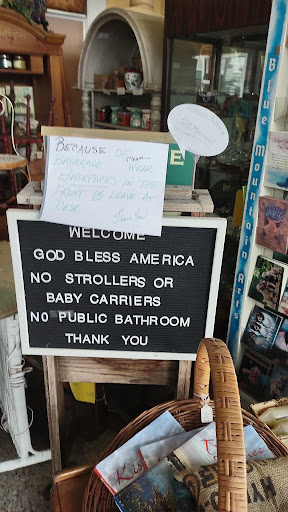 BECAUSE OF
BREAKAGE WEAR
BACKPACKS IN THE
FRONT OR LEAVE AT
DESK Thank You!
WELCOME
GOD BLESS AMERICA
NO STROLLERS OR
BABY CARRIERS
NO PUBLIC BATHROOM
THANK YOU
Blue Mountain Arts